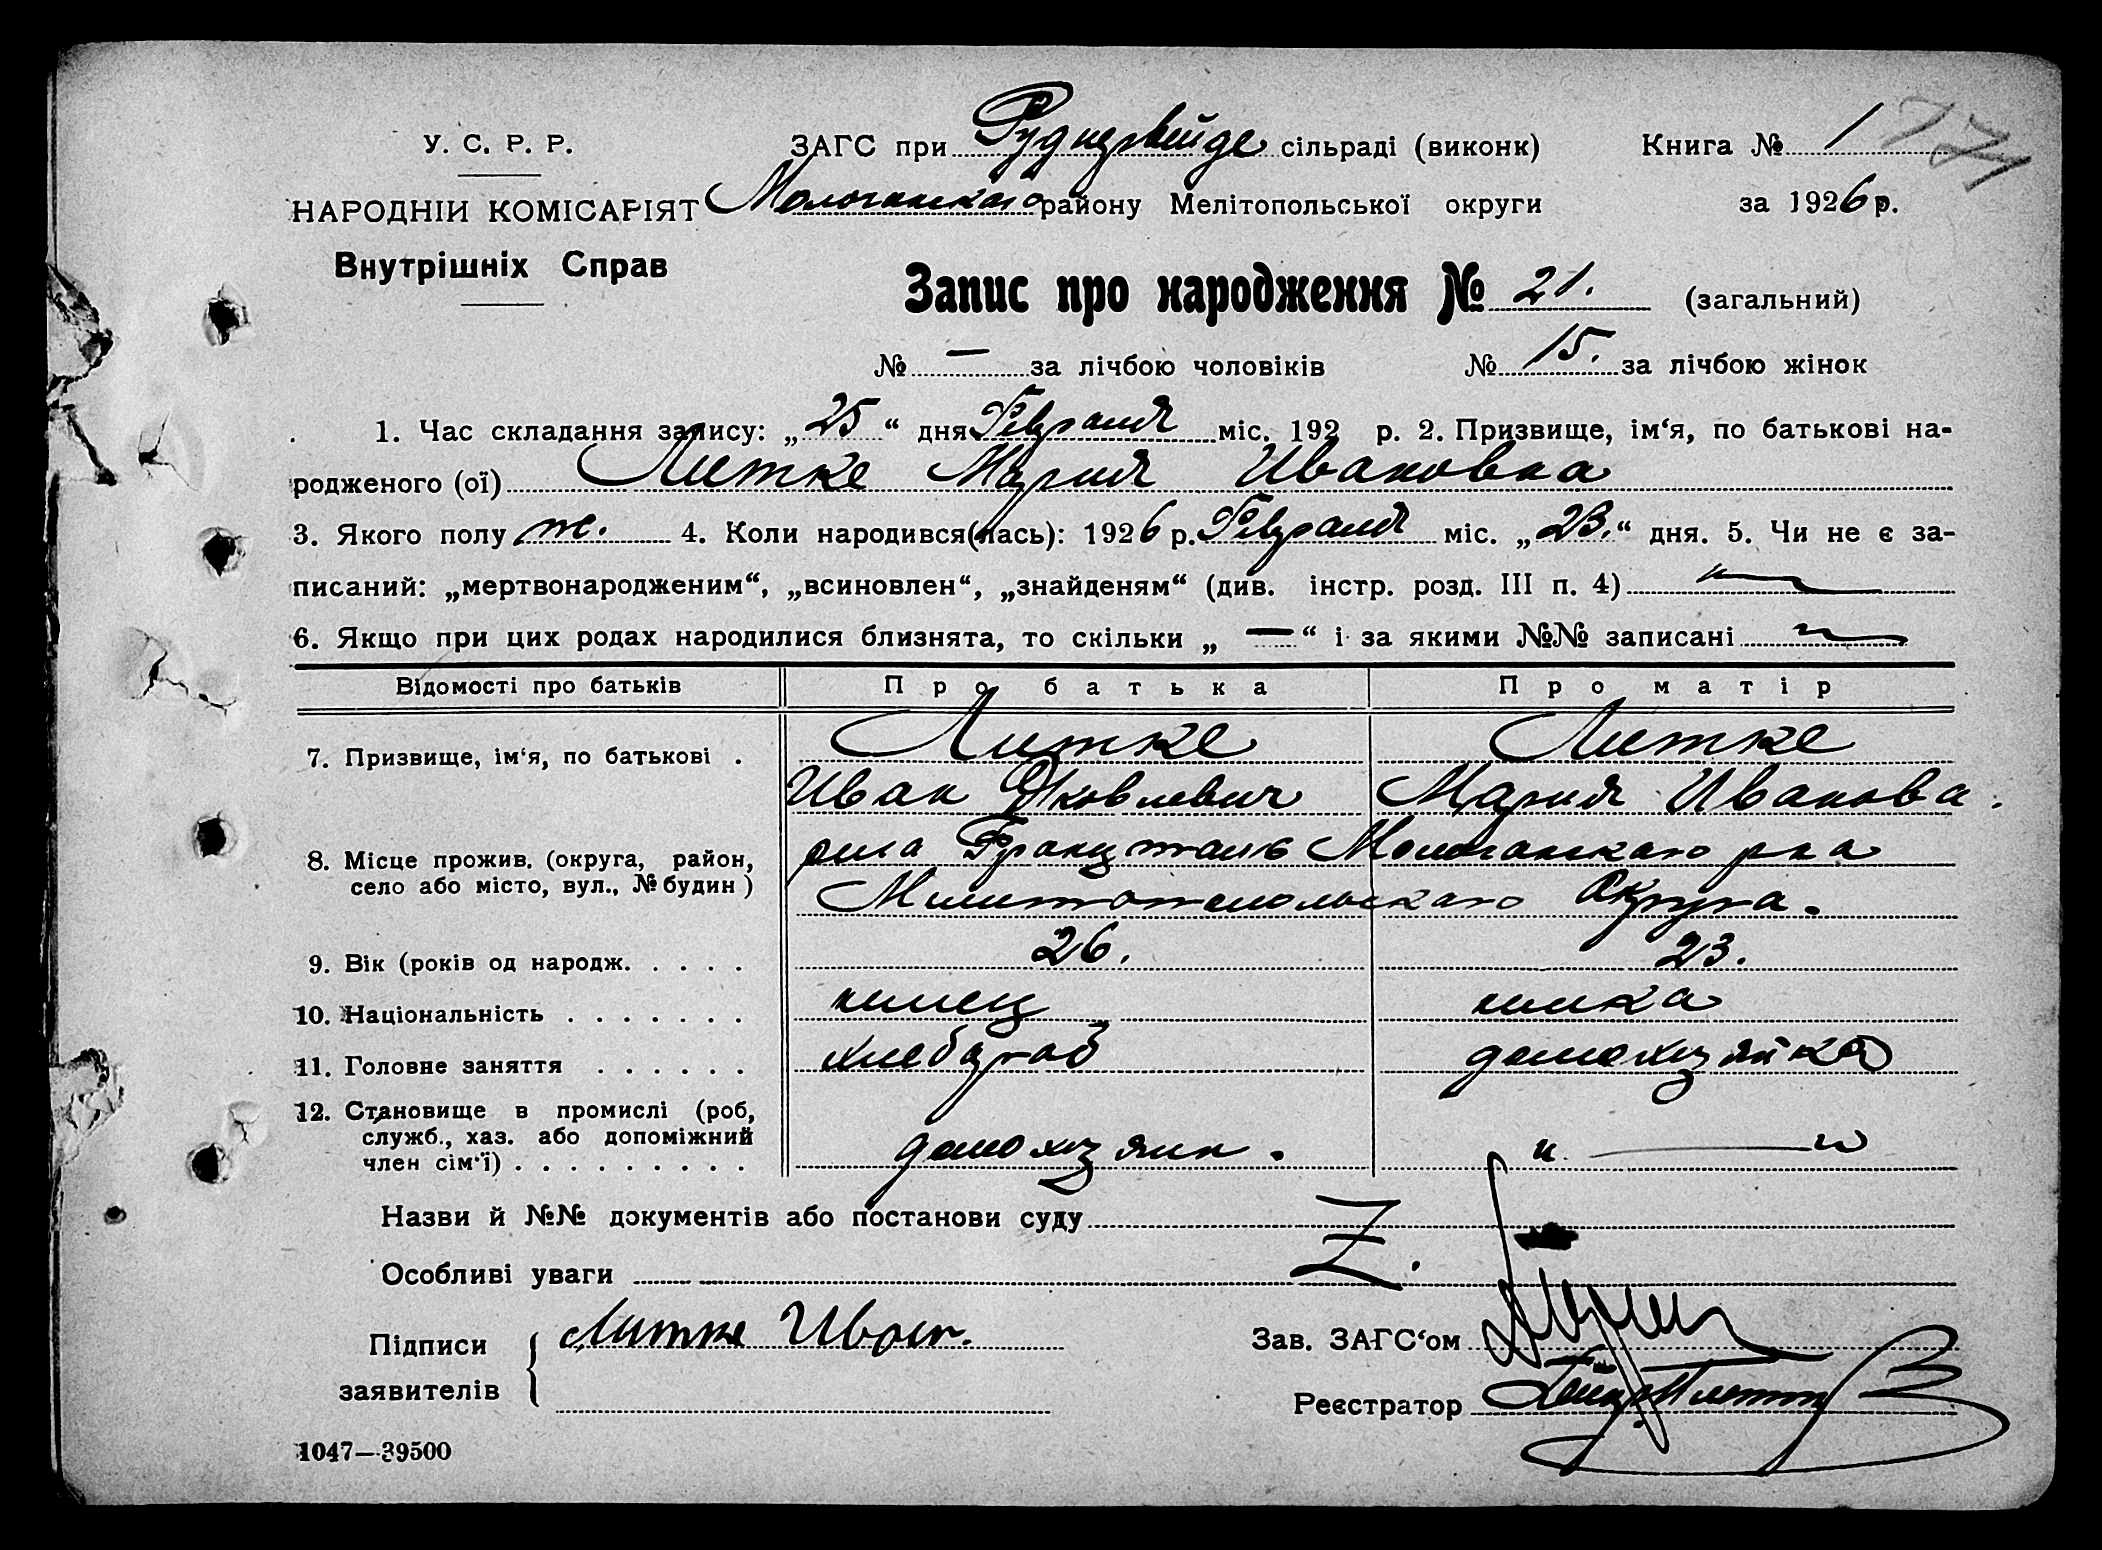 У. С. Р. Р.
НАРОДНІЙ КОМІСАРІЯТ
Внутрішніх Справ
ЗАГС при Руднервейде сільраді (виконк)
Молочанского району Мелітопольської округи
Книга № 1
174
за 1926 р.
Запис про народження № 21. (загальний)
№ — за лічбою чоловіків № 15. за лічбою жінок
1. Час складання запису: „25“ дня Февраля міс. 192 р. 2. Призвище, ім‘я, по батькові на-
родженого (ої) Литке Мария Ивановна
3. Якого полу ж. 4. Коли народився(лась): 1926 р. Февраля міс. „23.“ дня. 5. Чи не є за-
писаний: „мертвонародженим“, „всиновлен“, „знайденям“ (див. інстр. розд. III п. 4) —
6. Якщо при цих родах народилися близнята, то скільки „ — “ і за якими №№ записані —
Відомості про батьків Про батька Про матір
7. Призвище, ім‘я, по батькові . Литке Литке
Иван Яковлевич Мария Иванова.
8. Місце прожив. (округа, район, Франц Молочанскаго рна
село або місто, вул., № будин ) Милитопольскаго Округа.
9. Вік (років од народж. . . . . 26. 23.
10. Національність . . . . . . . нимец нимка
11. Головне заняття . . . . . . хлебароб домохозяйка
12. Становище в промислі (роб,
служб., хаз. або допоміжний
член сім‘ї) . . . . . . . . . домохозяин. " — "
Назви й №№ документів або постанови суду
Z.
Особливі уваги
Підписи
заявителів
Литке Иван.
Зав. ЗАГС‘ом
Реєстратор
1047—39500